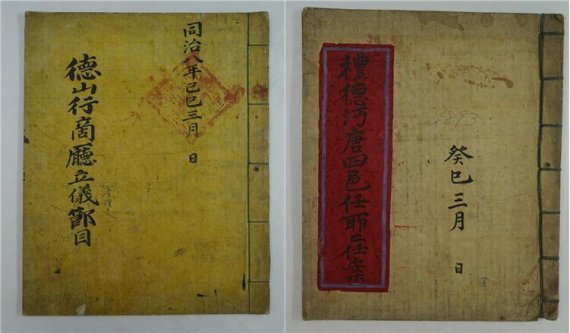 同治八年己巳三月 日
德山行商廳立儀節目
1893
癸巳三月 日
禮德沔唐四邑任案